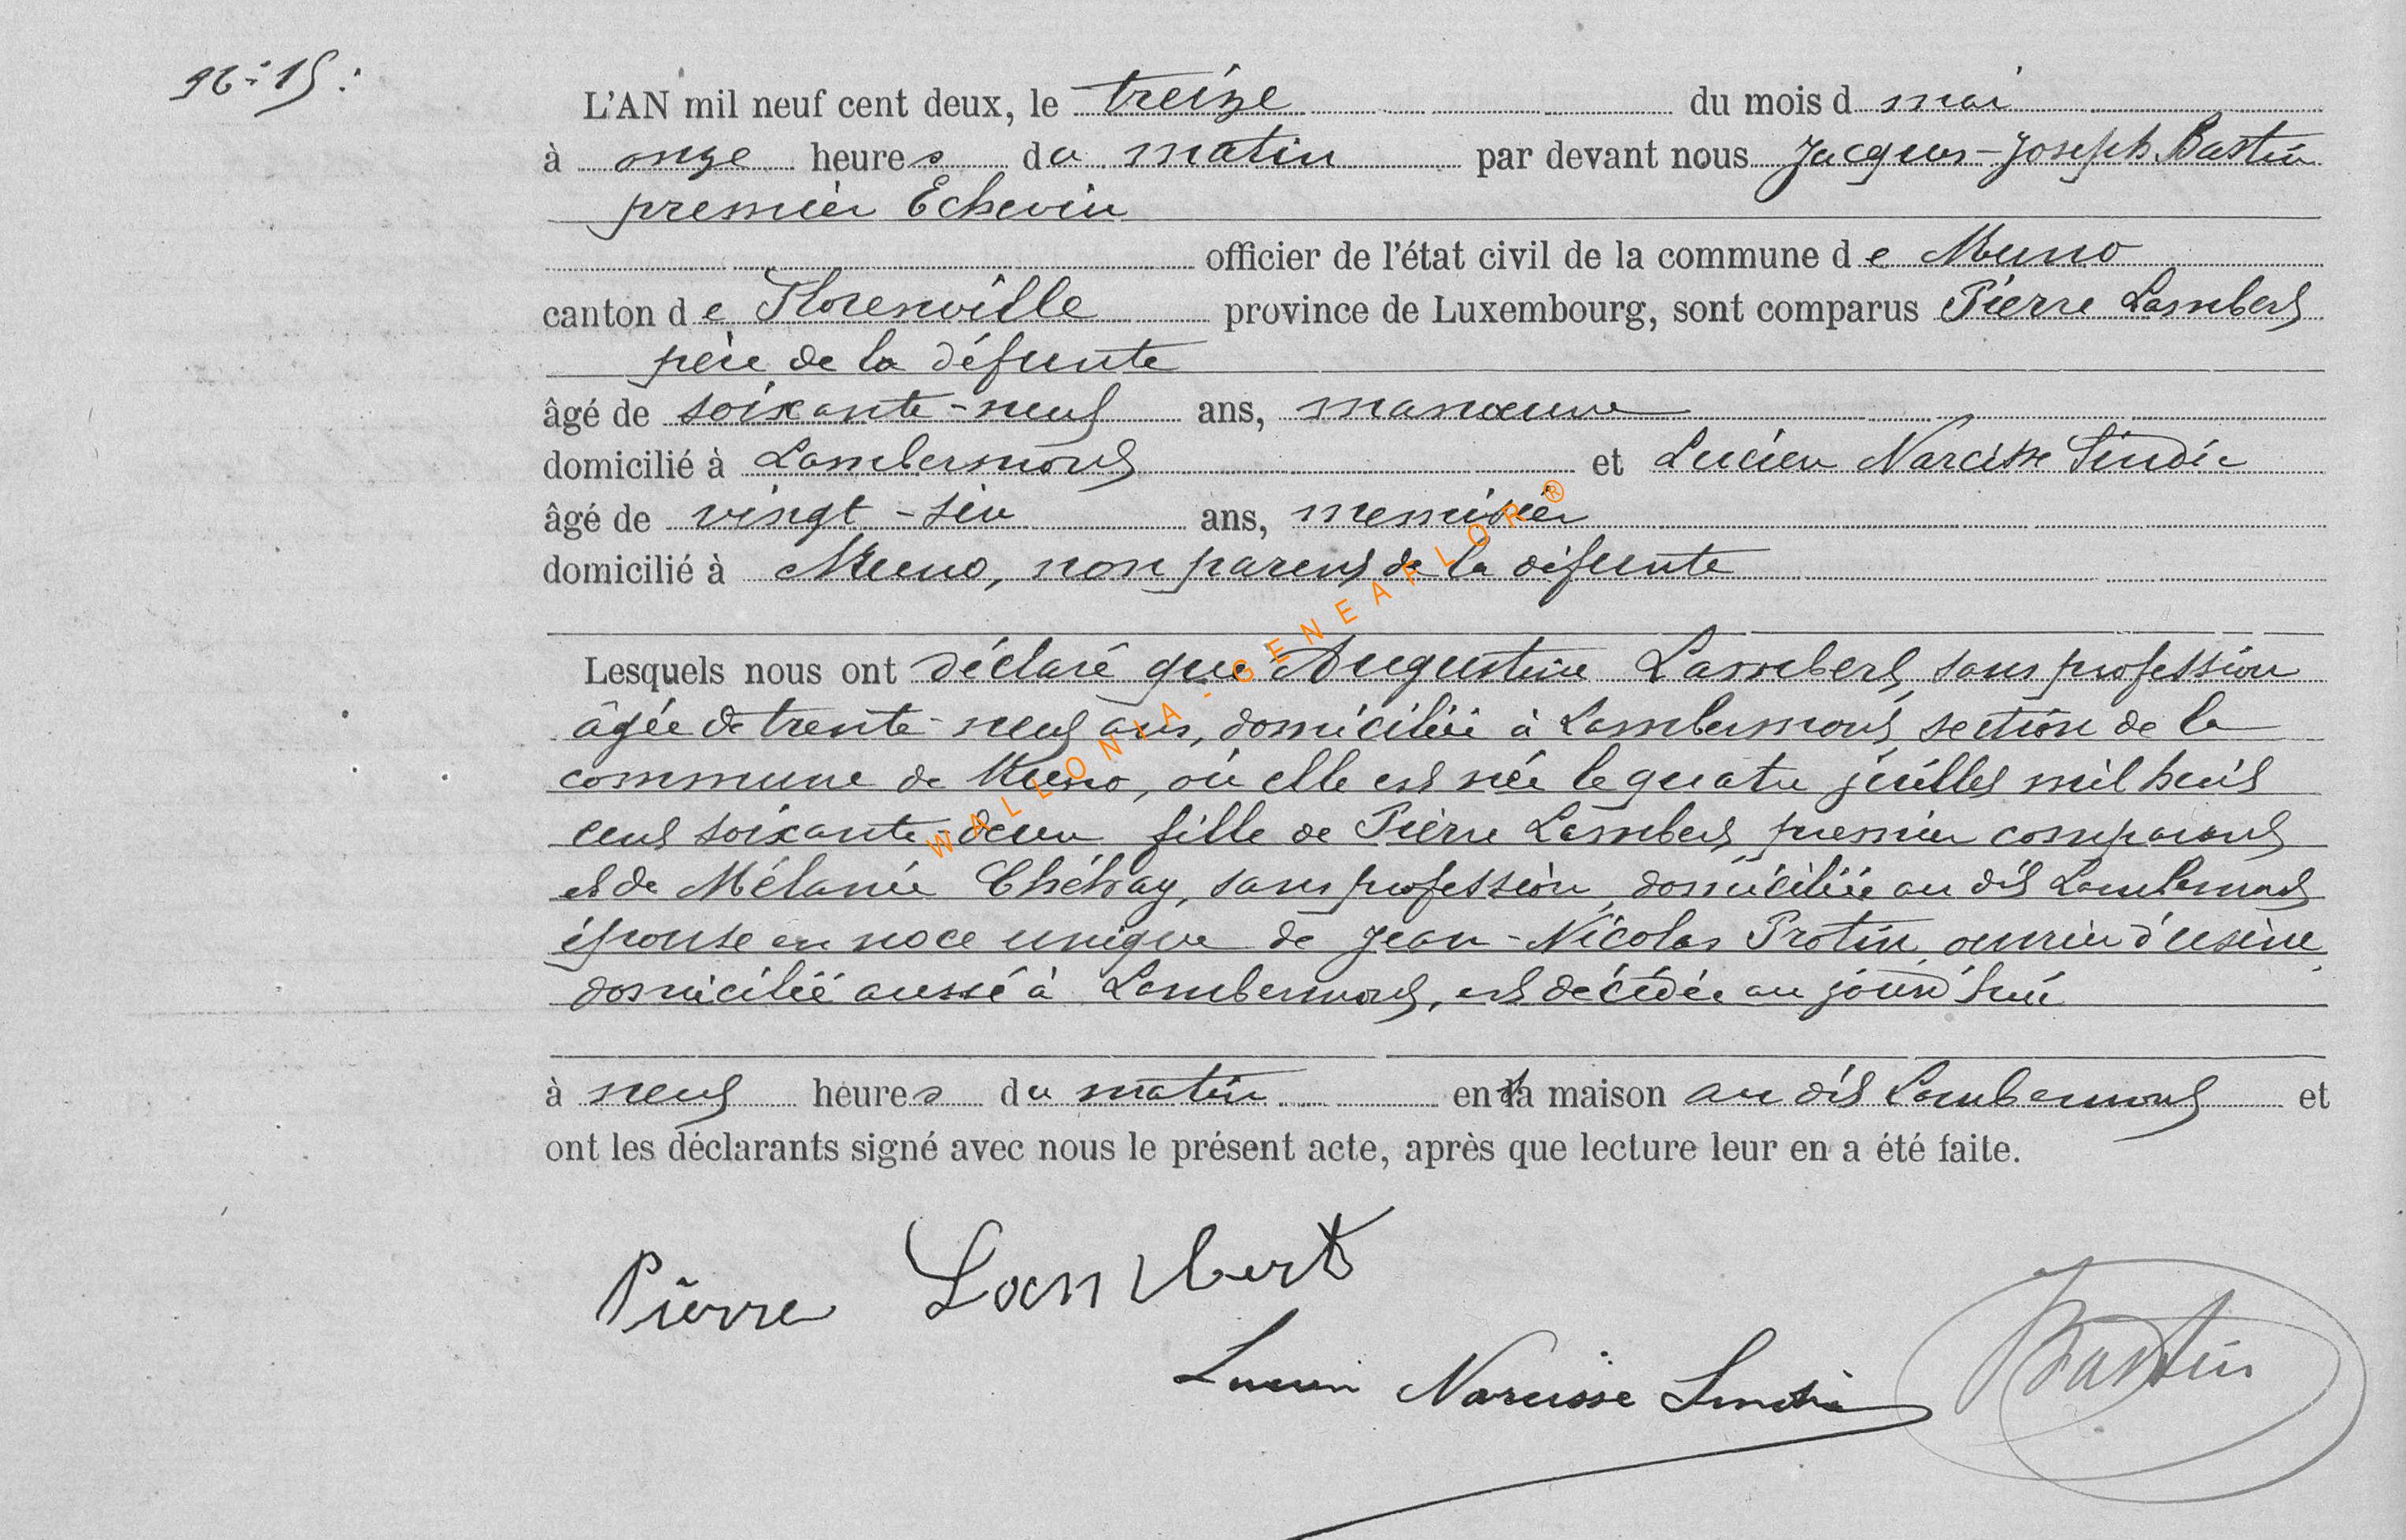 N° 15 :
L'AN mil neuf cent deux, le treize du mois d mai
à onze heures du matin par devant nous Jacques-Joseph Bastin
premier Echevin
officier de l'état civil de la commune de Muno
canton de Florenville province de Luxembourg, sont comparus Pierre Lambert
père de la défunte
âgé de soixante-neuf ans, manœuvre
domicilié à Lambermont et Lucien Narcisse Sindic
âgé de vingt-six ans, menuisier
domicilié à Muno, non parent de la défunte
Lesquels nous ont déclaré que Augustine Lambert, sans profession
âgée de trente-neuf ans, domiciliée à Lambermont, section de la
commune de Muno, où elle est née le quatre juillet mil huit
cent soixante-deux fille de Pierre Lambert, premier comparant
et de Mélanie sans profession, domiciliée au dit Lambermont
épouse en noce unique de Jean-Nicolas Protin, ouvrier d'usine
domicilié aussi à Lambermont, est décédée au jourd'hui
à neuf heures du matin en sa maison au dit Lambermont et
ont les déclarants signé avec nous le présent acte, après que lecture leur en a été faite.
Pierre Lambert
Lucien Narcisse Sindic
Bastin
WALLONIA-GENEAFLOR®